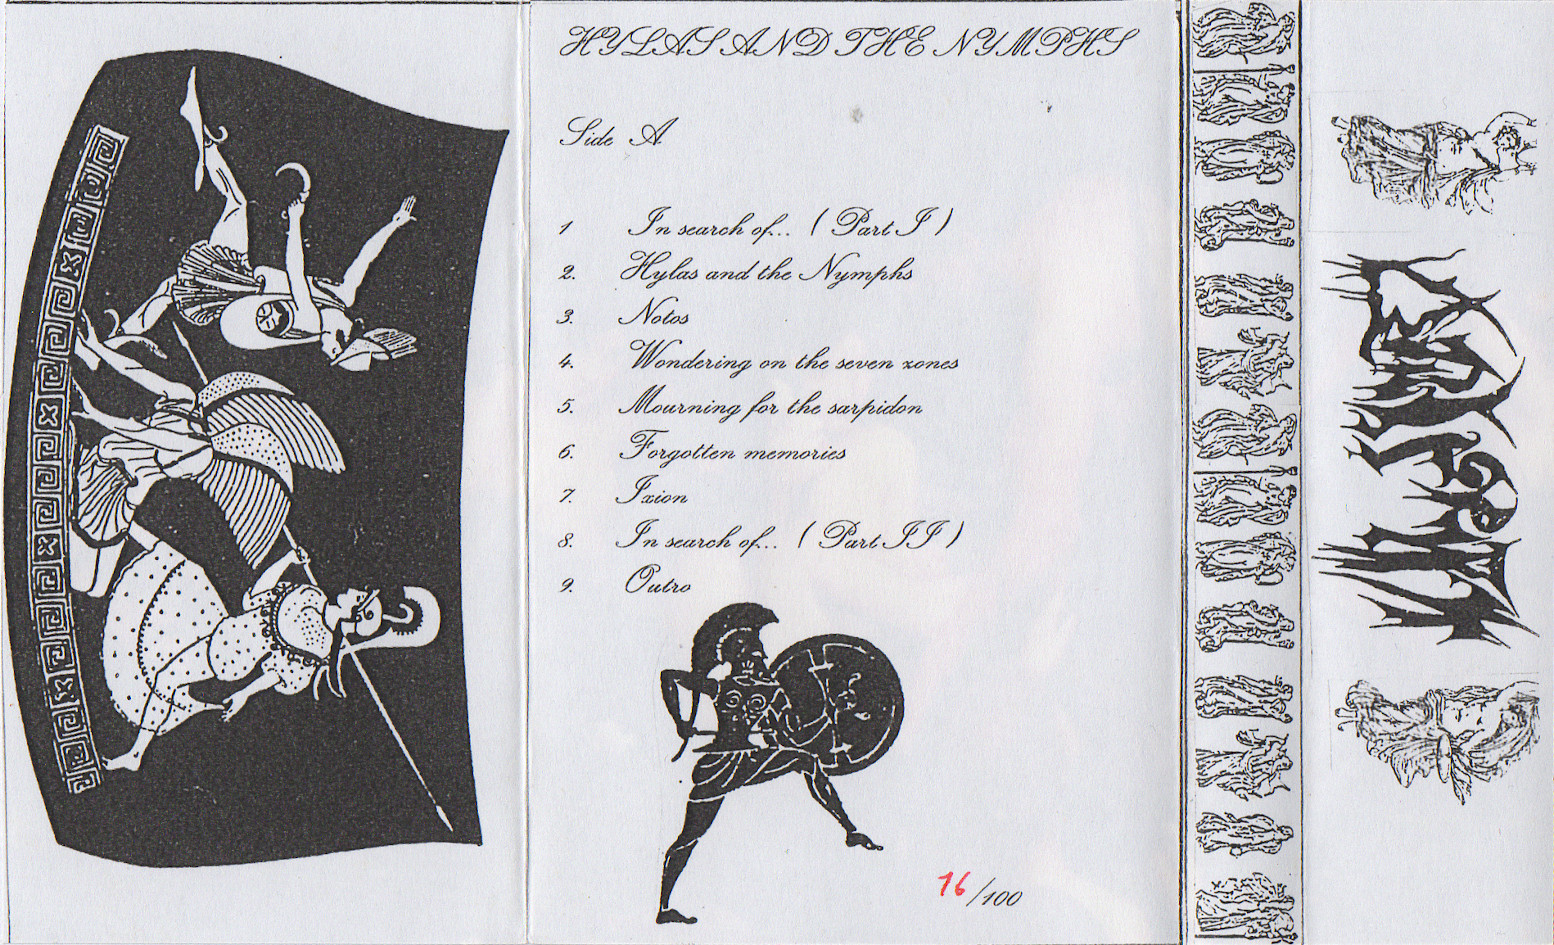 HYLAS AND THE NYMPHS
Side A.
1 In search of... ( Part I )
2. Hylas and the Nymphs
3. Notos
4. Wondering on the seven zones
5. Mourning for the sarpidon
6. Forgotten memories
7. Ixion
8. In search of... ( Part II )
9. Outro
16/100